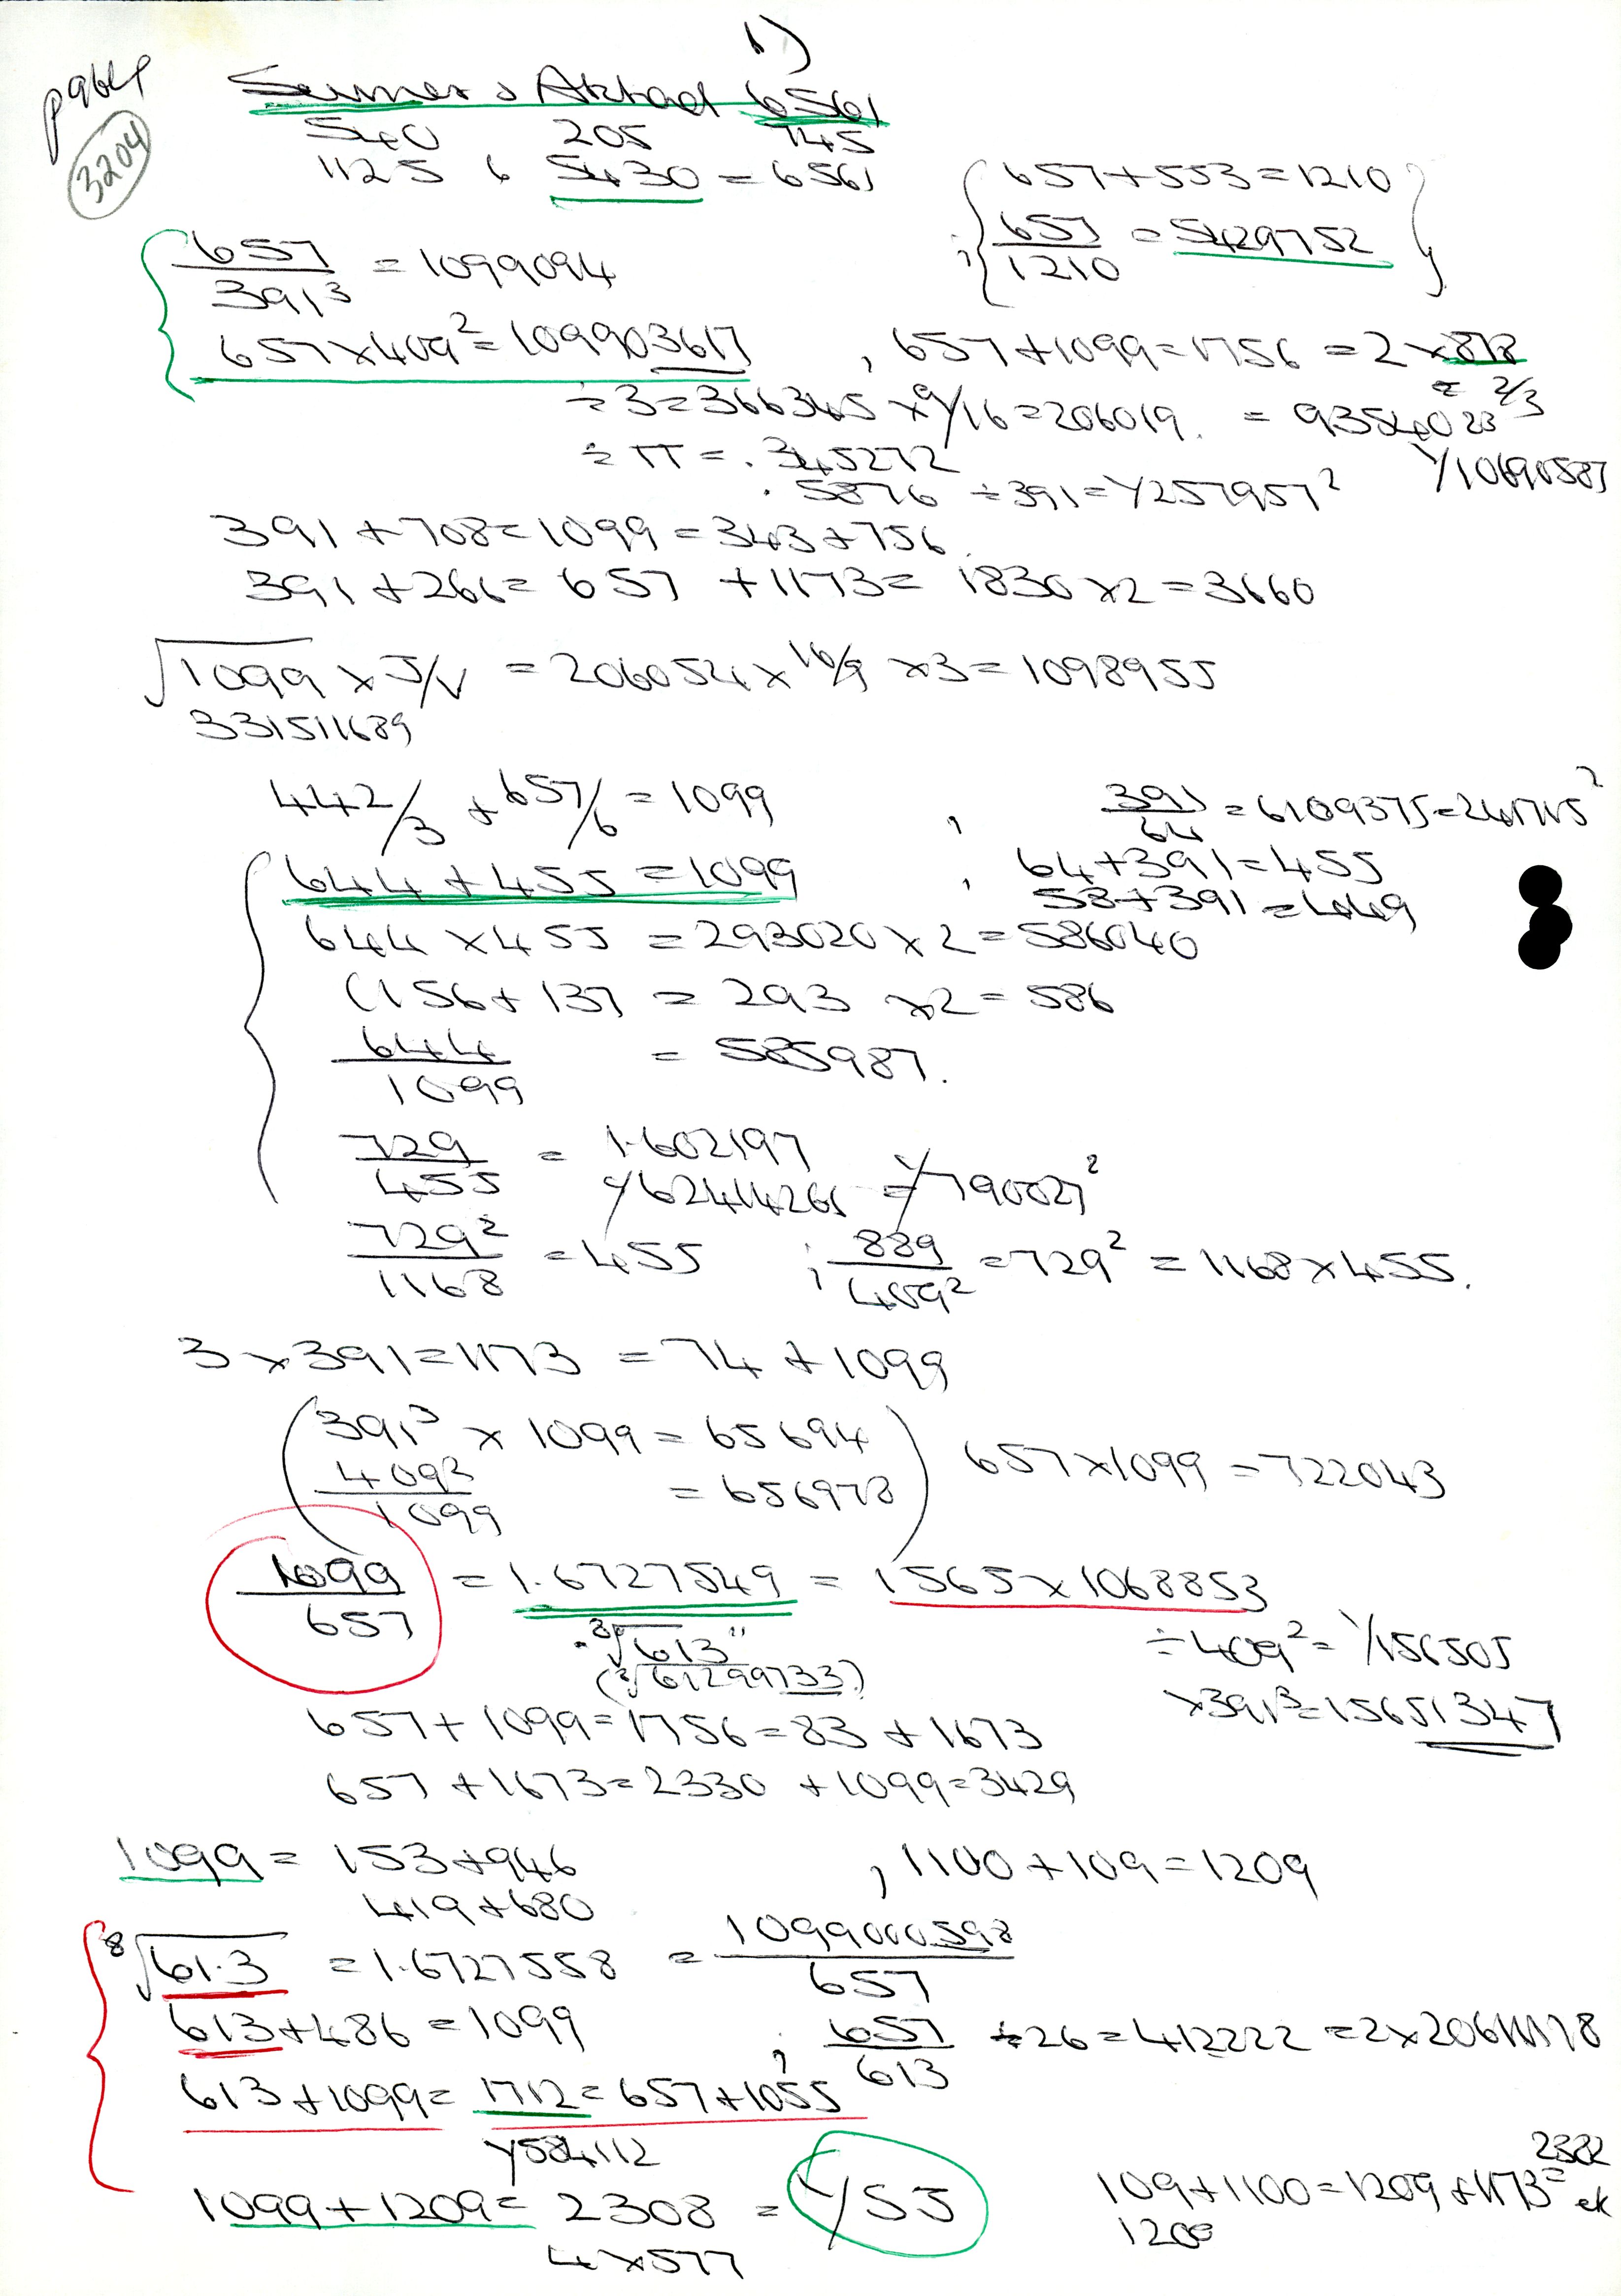 1)
page
3204
Sumer & Akkad 6561
540 205 745
1125 & 5430 = 6561
{ 657+553=1210 }
; { 657/1210 = 5429752 }
657/391³ = 1099094
657×409² = 109903617 , 657+1099=1756 = 2×878
÷3=366345 ×9/16=206019. = 935402 2/3
÷π=.345272 1/10690587
.5876 ÷391=1/257957²
391+708=1099=343+756.
391+266=657 +1173= 1830×2=3660
√1099 × 5/√ = 206054×16/9 ×3=1098955
331511689
442/3 + 657/6 = 1099 , 391/64 = 6109375=247715²
644+455=1099 , 64+391=455
58+391=449
644×455=293020×2=586040
(156+137 = 293 ×2=586
644/1099 = 585987.
729/455 = 1.602197
1/62414261 = 1/790027²
729²/1168 = 455 ; 889/409² =729² = 1168×455.
3×391=1173 = 74+1099
( 391³ × 1099 = 65694 )
4093/1099 = 656978 657×1099=722043
1099/657 = 1.6727549 = 1565×1068853
.⁸√613" ÷409²= 1/156505
(⁸√61299733) ×391³=15651347
657+1099=1756=83+1673
657+1673=2330 +1099=3429
1099 = 153+946 , 1100+109=1209
419+680
⁸√61.3 = 1.6727558 = 1099000598/657
613+486=1099 ; 657/613 ÷26=412222 =2×20611178
613+1099= 1712=657+1055
1/584112
1099+1209= 2308 = 1/55 109+1100=1209+1173=2382
4×577 1209